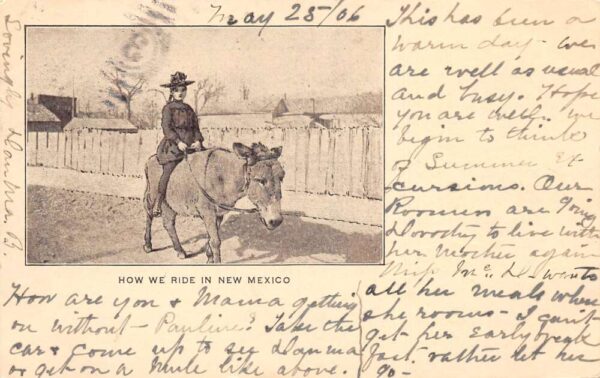 May 25/06
This has been a
warm day - we
are well as usual
and busy. Hope
you are well. we
begin to think
of Summer Ex
cursions. Our
Roomers are going
Dorothy to live with
her Mother again
Miss Mc D- wants
all her meals where
she rooms - I can't
get her early break
fast. rather let her
go -
HOW WE RIDE IN NEW MEXICO
How are you & Mama getting
on without - Pauline? Take the
car & come up to see Danma
or get on a Mule like above.
Lovingly Danma B.